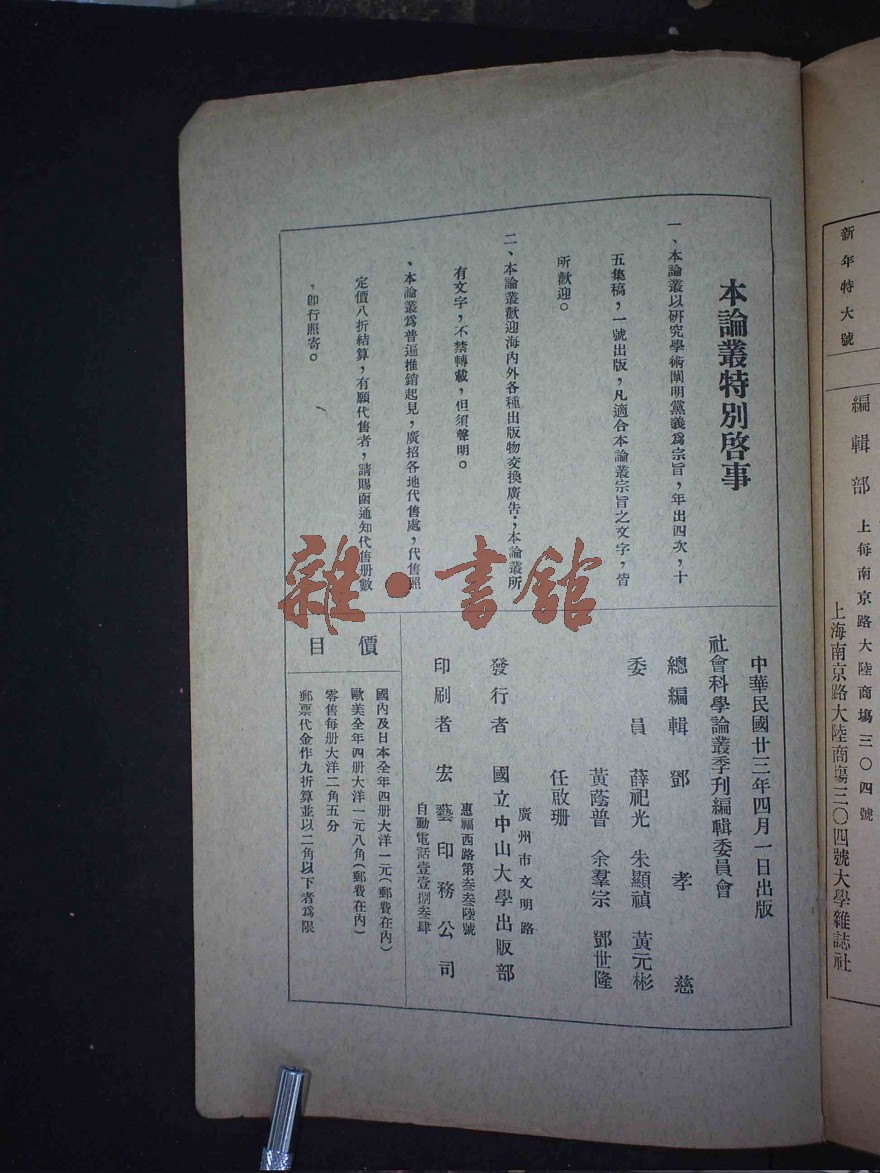 新年特大號
編輯部 上每南京路大陸商塲三〇四號
上海南京路大陸商塲三〇四號大學雜誌社
本論叢特別啓事
一、本論叢以研究學術闡明黨義爲宗旨，年出四次，十
五集稿，一號出版，凡適合本論叢宗旨之文字，皆
所歡迎。
二、本論叢歡迎海內外各種出版物交換廣告；本論叢所
有文字，不禁轉載，但須聲明。
、本論叢爲普遍推銷起見，廣招各地代售處，代售照
定價八折結算，有願代售者，請賜函通知代售册數
，卽行照寄。
中華民國廿三年四月一日出版
社會科學論叢季刊編輯委員會
總編輯 鄧孝慈
委員 薛祀光 朱顯禎 黃元彬
黃蔭普 余羣宗 鄧世隆
任啟珊
廣州市文明路
發行者 國立中山大學出版部
惠福西路第叁叁陸號
印刷者 宏藝印務公司
自動電話壹壹捌叁肆
價目
國內及日本全年四册大洋一元（郵費在內）
歐美全年四册大洋一元八角（郵費在內）
零售每册大洋二角五分
郵票代金作九折算並以二角以下者爲限
雜·書館